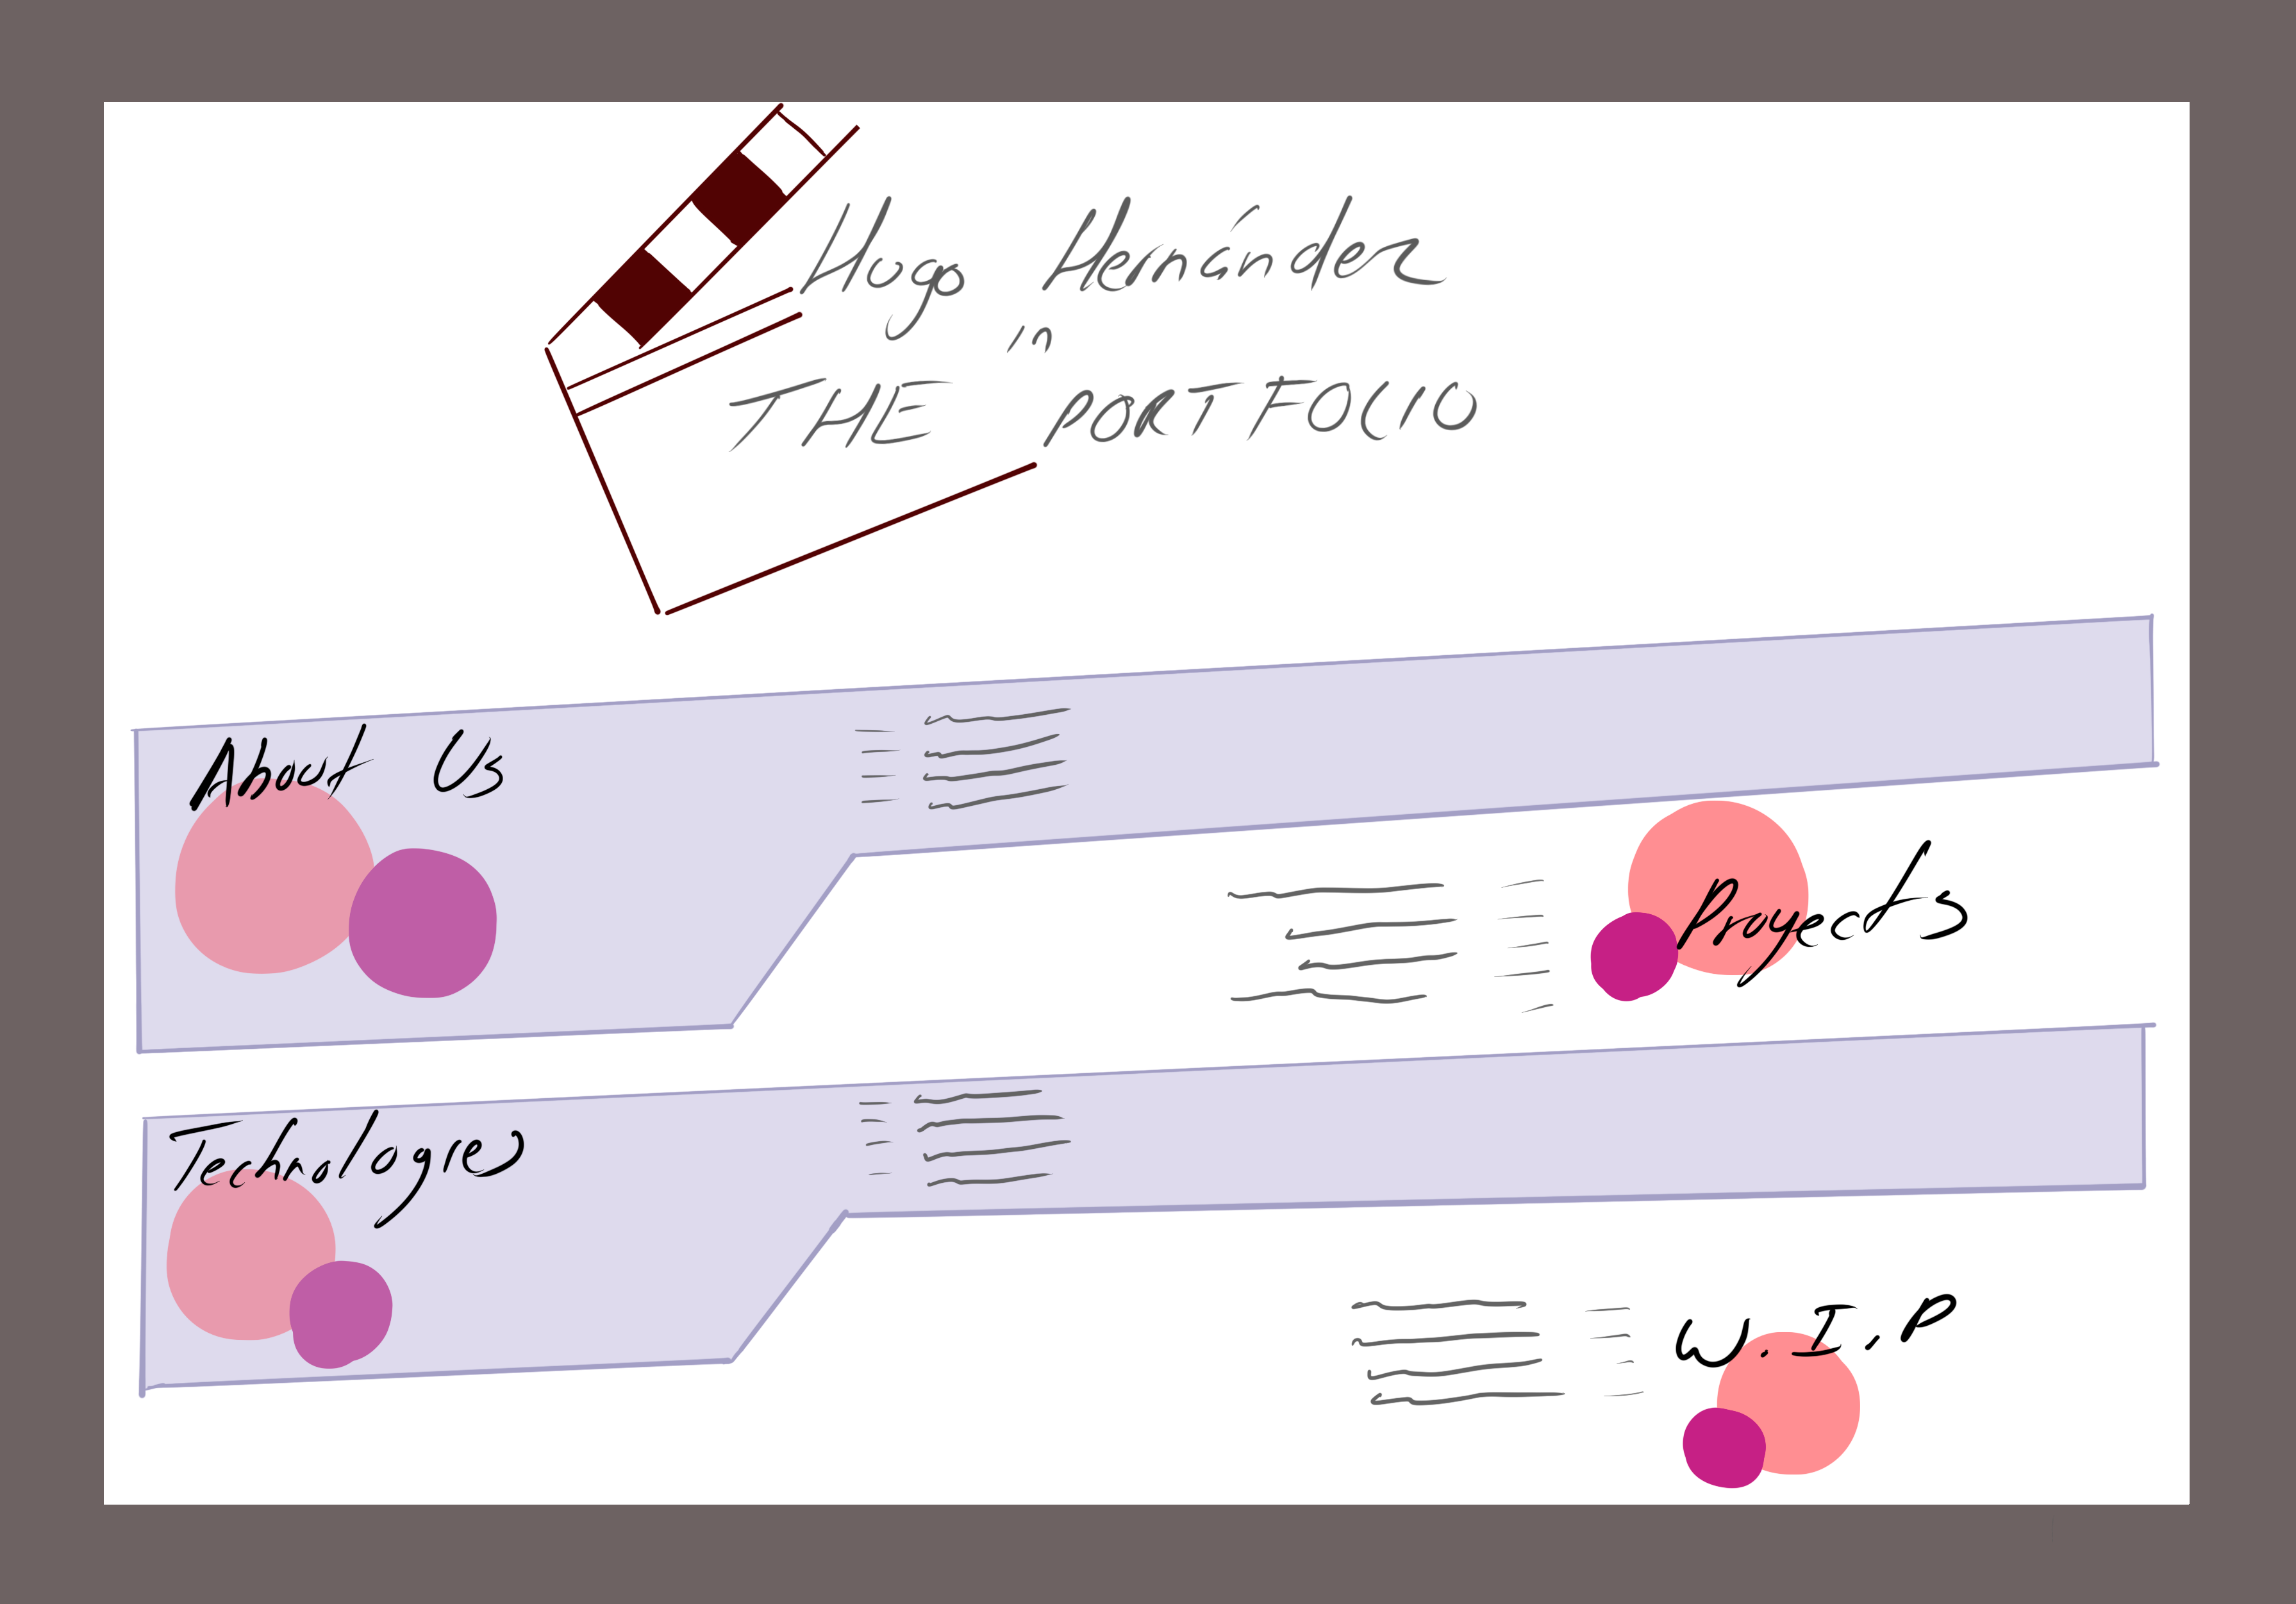 Hugo Hernández
in
THE PORTFOLIO
About Us
Proyects
Technologies
W.I.P